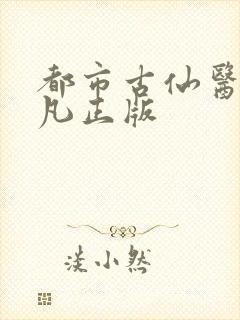 都市古仙醫
凡正版
淡小然